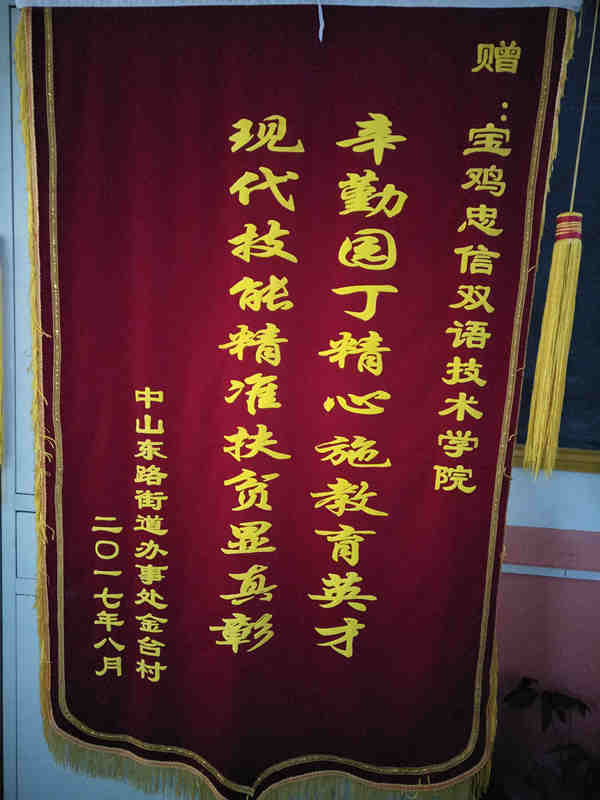 赠：宝鸡忠信双语技术学院
辛勤园丁精心施教育英才
现代技能精准扶贫显真彰
中山东路街道办事处金台村
二〇一七年八月